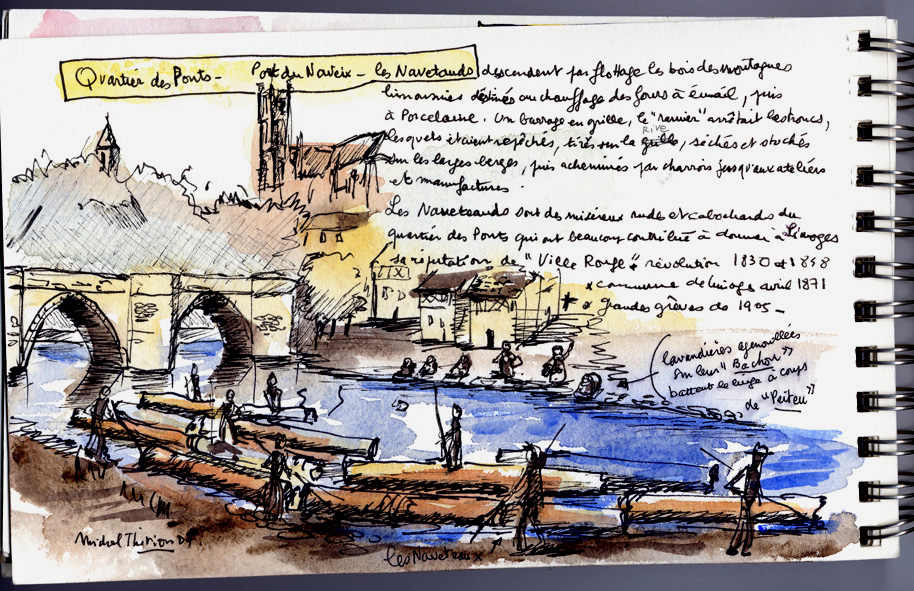 Quartier des Ponts - Port du Naveix - les Navetauds descendent par flottage les bois des montagnes
limousines destinés au chauffage des fours à émail, puis
à Porcelaine. Un barrage en grille, le "ramier" arrêtait les troncs,
lesquels étaient repêchés, tirés sur la rive, séchés et stockés
sur les larges berges, puis acheminés par charrois jusqu'aux ateliers
et manufactures.
Les Naveteauds sont des miséreux rudes et cabochards du
quartier des Ponts qui ont beaucoup contribué à donner à Limoges
sa réputation de "Ville Rouge" * révolution 1830 et 1848
* Commune de Limoges avril 1871
* Grandes grèves de 1905 -
lavandières agenouillées
sur leur "Bachou"
battent le linge à coups
de "Peiteu"
Michel Thirion
les Naveteaux